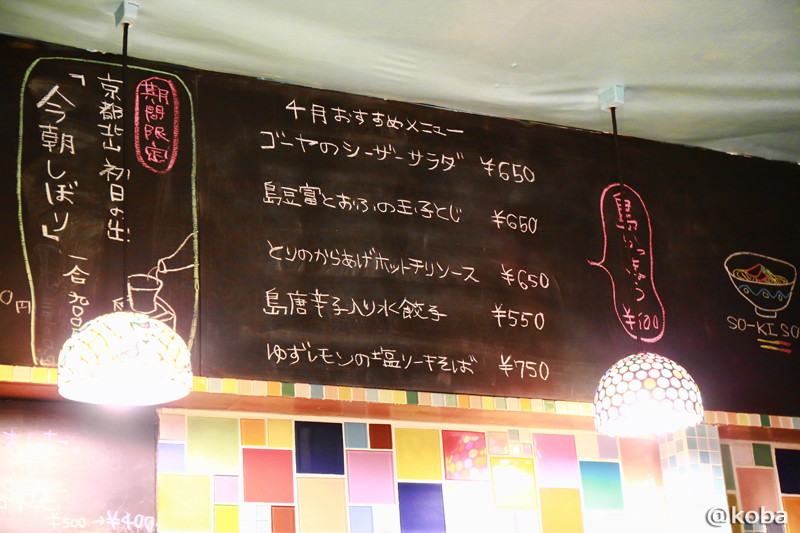 期間限定
京都北山 初日の出
「今朝しぼり」
一合
0円
4月おすすめメニュー
ゴーヤのシーザーサラダ ¥650
島豆富とおふの玉子とじ ¥650
とりのからあげホットチリソース ¥650
島唐辛子入り水餃子 ¥550
ゆずレモンの塩ソーキそば ¥750
島らっきょう
¥100
SO-KISO
¥500→¥400
@koba